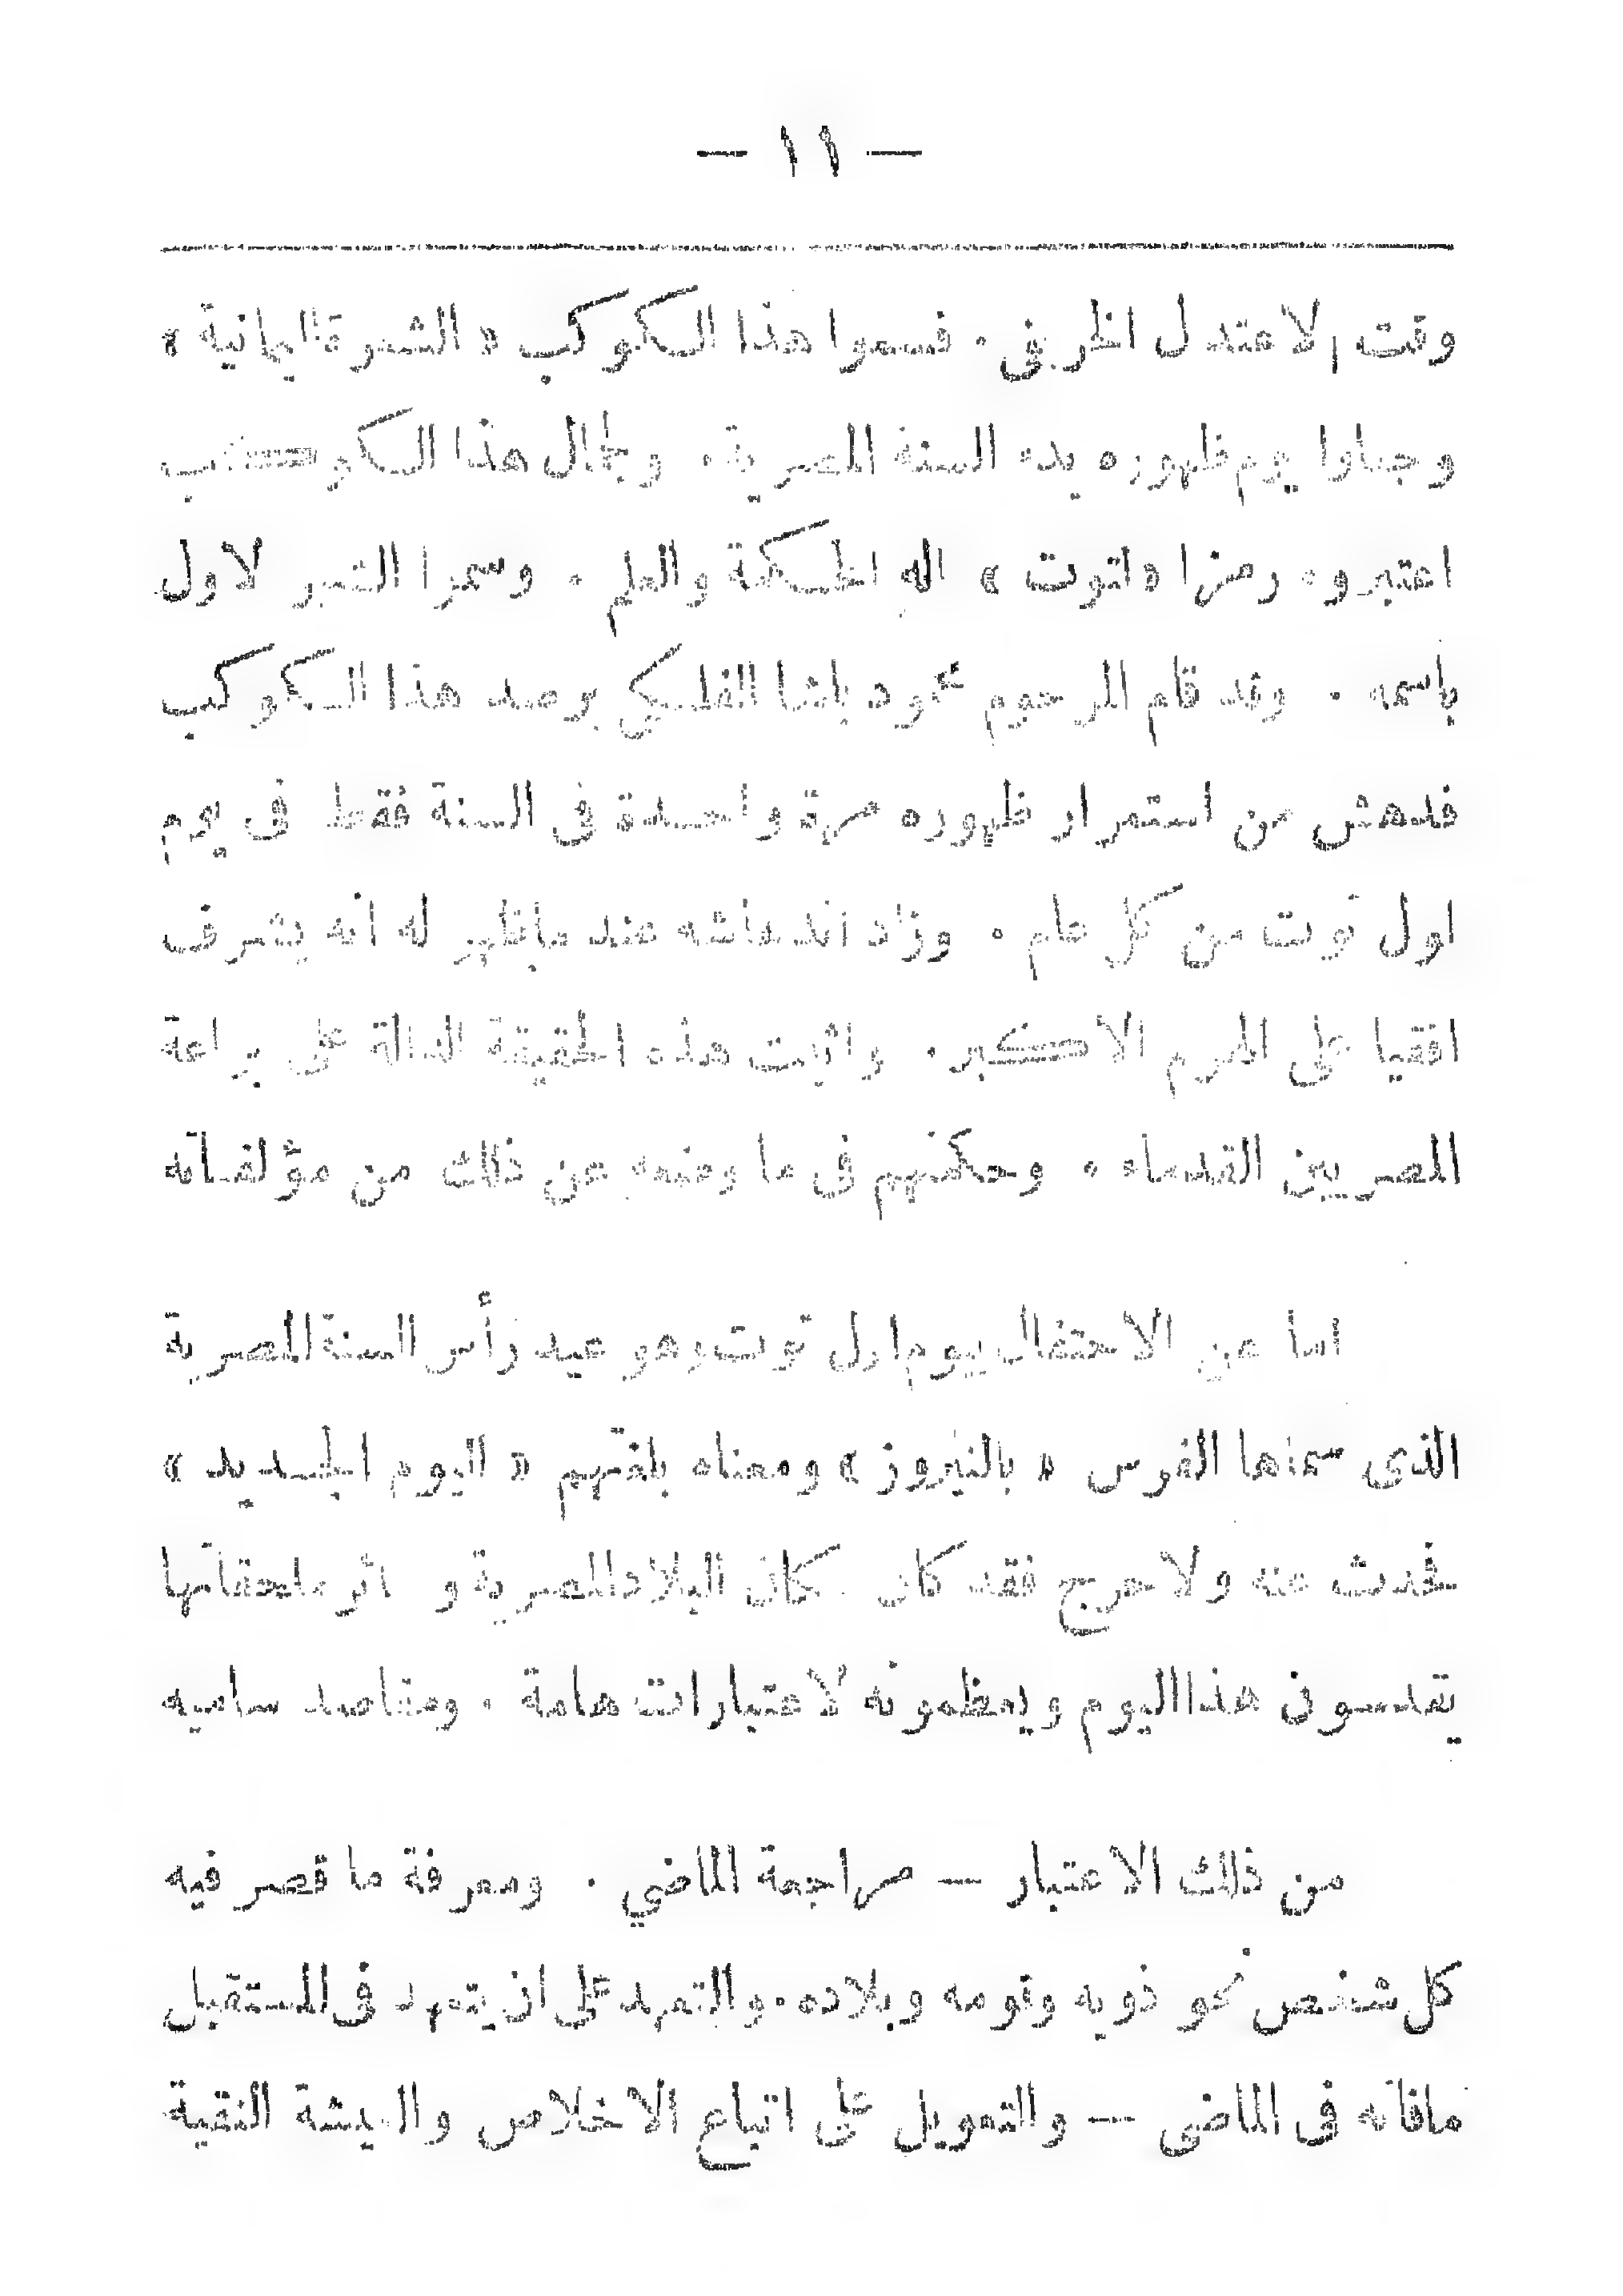 — ١١ —
وقت الاعتدل الخريفى . فسموا هذا الكوكب « الشعرة اليمانية »
وجعلوا يوم ظهوره بدء السنة المصرية . ولجمال هذا الكوكب
اعتبروه رمزا « لتوت » اله الحكمة والعلم . وسموا الشهر الاول
باسمه . وقد قام المرحوم محمود باشا الفلكي برصد هذا الكوكب
فدهش من استمرار ظهوره مرة واحدة فى السنة فقط فى يوم
اول توت من كل عام . وزاد اندهاشه عند ماظهر له انه يشرف
افقيا على الهرم الاكبر . واثبت هذه الحقيقة الدالة على براعة
المصريين القدماء . وحكمتهم فى ما وضعه عن ذلك من مؤلفاته
اما عن الاحتفال بيوم اول توت وهو عيد رأس السنة المصرية
الذى سماها الفرس « بالنيروز » ومعناه بلغتهم « اليوم الجديد »
فحدث عنه ولا حرج فقد كان سكان البلاد المصرية و سائر ملحقاتها
يقدسون هذا اليوم ويعظمونه لاعتبارات هامة . ومقاصد ساميه
من ذلك الاعتبار — مراجعة الماضي . ومعرفة ما قصر فيه
كل شخص نحو ذويه وقومه وبلاده . والتعهد على ان يتعهد فى المستقبل
مافاته فى الماضى — والتعويل على اتباع الاخلاص والعيشة النقية